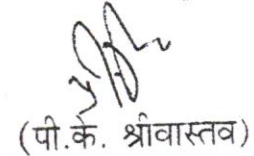 (पी.के. श्रीवास्तव)